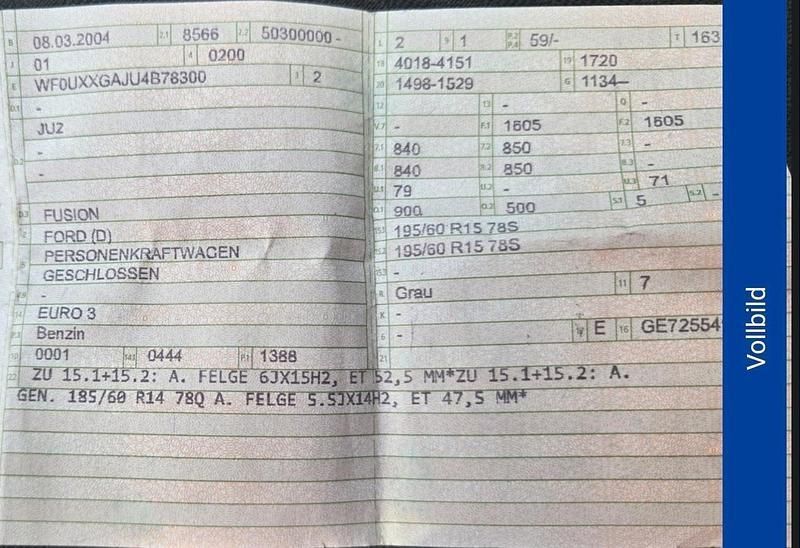 B 08.03.2004 2.1 8566 2.2 50300000 -
J 01 4 0200
E WF0UXXGAJU4B78300 3 2
D.1 -
JU2
D.2 -
-
D.3 FUSION
2 FORD (D)
5 PERSONENKRAFTWAGEN
GESCHLOSSEN
V.9 -
14 EURO 3
P.3 Benzin
10 0001 14.1 0444 P.1 1388
L 2 9 1 P.2 P.4 59/- T 163
18 4018-4151 19 1720
20 1498-1529 G 1134—
12 - 13 - Q -
V.7 - F.1 1605 F.2 1605
7.1 840 7.2 850 7.3 -
8.1 840 8.2 850 8.3 -
U.1 79 U.2 - U.3 71
O.1 900 O.2 500 S.1 5 S.2 -
15.1 195/60 R15 78S
15.2 195/60 R15 78S
15.3 -
R Grau 11 7
K -
6 - 17 E 16 GE72554
21
22 ZU 15.1+15.2: A. FELGE 6JX15H2, ET 52,5 MM*ZU 15.1+15.2: A.
GEN. 185/60 R14 78Q A. FELGE 5.5JX14H2, ET 47,5 MM*
Vollbild